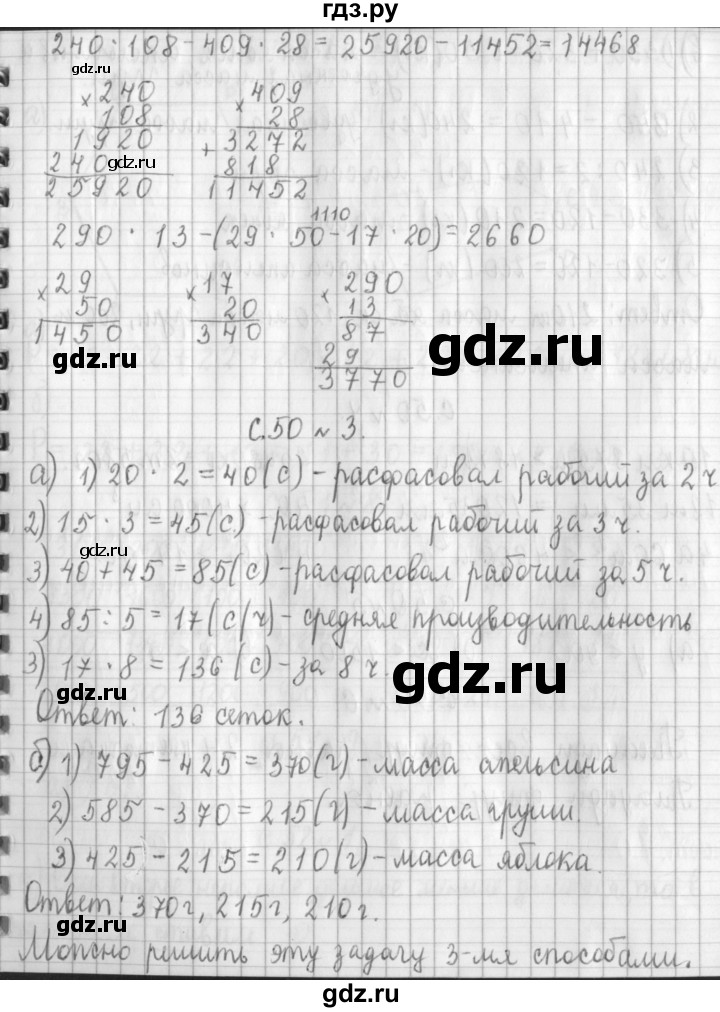 гдз.ру
240 · 108 - 409 · 28 = 25920 - 11452 = 14468
gdz.ru
× 240
108
1920
240
25920
gdz.ru
× 409
28
+ 3272
818
11452
1110
290 · 13 - (29 · 50 - 17 · 20) = 2660
× 29
50
1450
× 17
20
340
× 290
13
87
29
3770
gdz.ru
gdz.ru
с.50 № 3.
а) 1) 20 · 2 = 40 (с) - расфасовал рабочий за 2 ч
gdz.ru
2) 15 · 3 = 45 (с) - расфасовал рабочий за 3 ч.
gdz.ru
3) 40 + 45 = 85 (с) - расфасовал рабочий за 5 ч.
4) 85 : 5 = 17 (с/ч) - средняя производительность
3) 17 · 8 = 136 (с) - за 8 ч.
gdz.ru
gdz.ru
Ответ: 136 сеток.
б) 1) 795 - 425 = 370 (г) - масса апельсина
2) 585 - 370 = 215 (г) - масса груши.
gdz.ru
3) 425 - 215 = 210 (г) - масса яблока.
Ответ: 370 г, 215 г, 210 г.
gdz.ru
Можно решить эту задачу 3-мя способами.
gdz.ru
gdz.ru